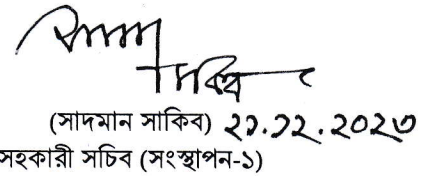 (সাদমান সাকিব) ২১.১২.২০২৩
সহকারী সচিব (সংস্থাপন-১)